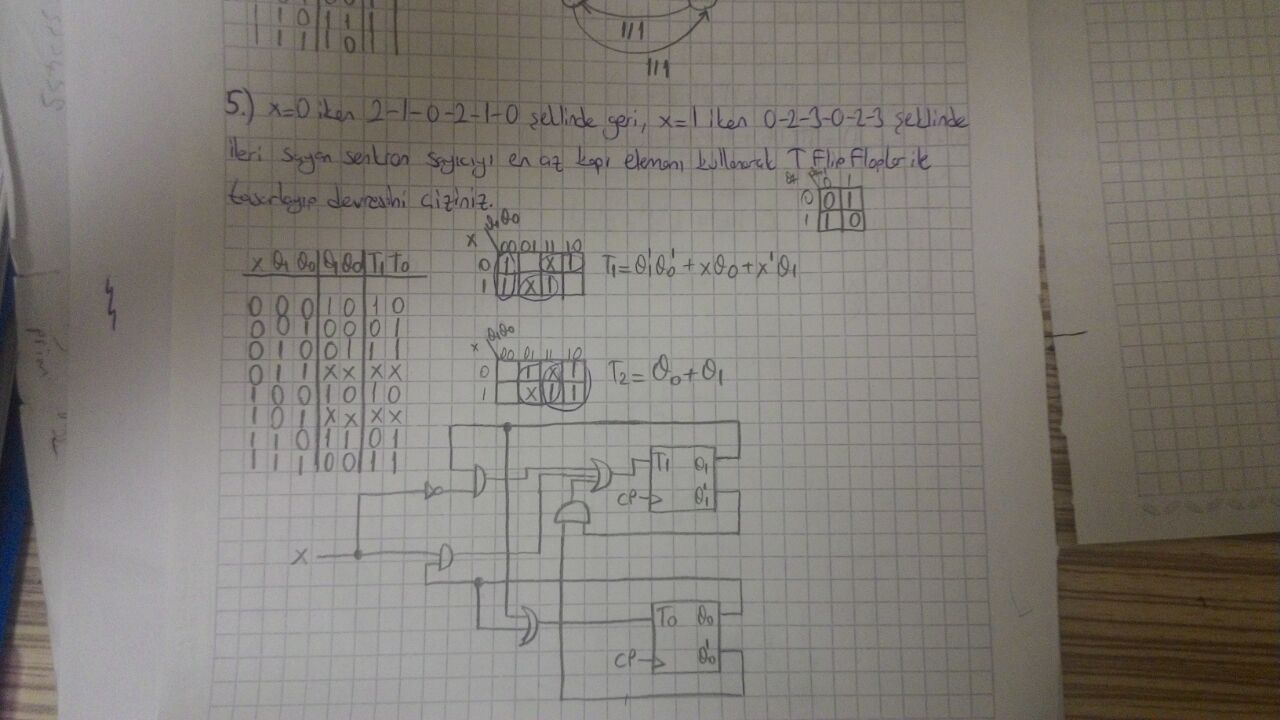 1 1 0 1 1
1 1 1 1 0
1/1
1/1
5.) x=0 iken 2-1-0-2-1-0 şeklinde geri, x=1 iken 0-2-3-0-2-3 şeklinde
ileri sayan senkron sayıcıyı en az kapı elemanı kullanarak T Flip Floplar ile
tasarlayıp devresini çiziniz.
0 1
0 0 1
1 1 0
x Q1 Q0 Q1 Q0 T1 T0
0 0 0 1 0 1 0
0 0 1 0 0 0 1
0 1 0 0 1 1 1
0 1 1 x x x x
1 0 0 1 0 1 0
1 0 1 x x x x
1 1 0 1 1 0 1
1 1 1 0 0 1 1
Q1Q0
x 00 01 11 10
0 1 x 1
1 1 x 1
T1=Q1'Q0' + xQ0 + x'Q1
Q1Q0
x 00 01 11 10
0 1 x 1
1 x 1 1
T2= Q0+Q1
T1 Q1
CP Q1'
X
T0 Q0
CP Q0'